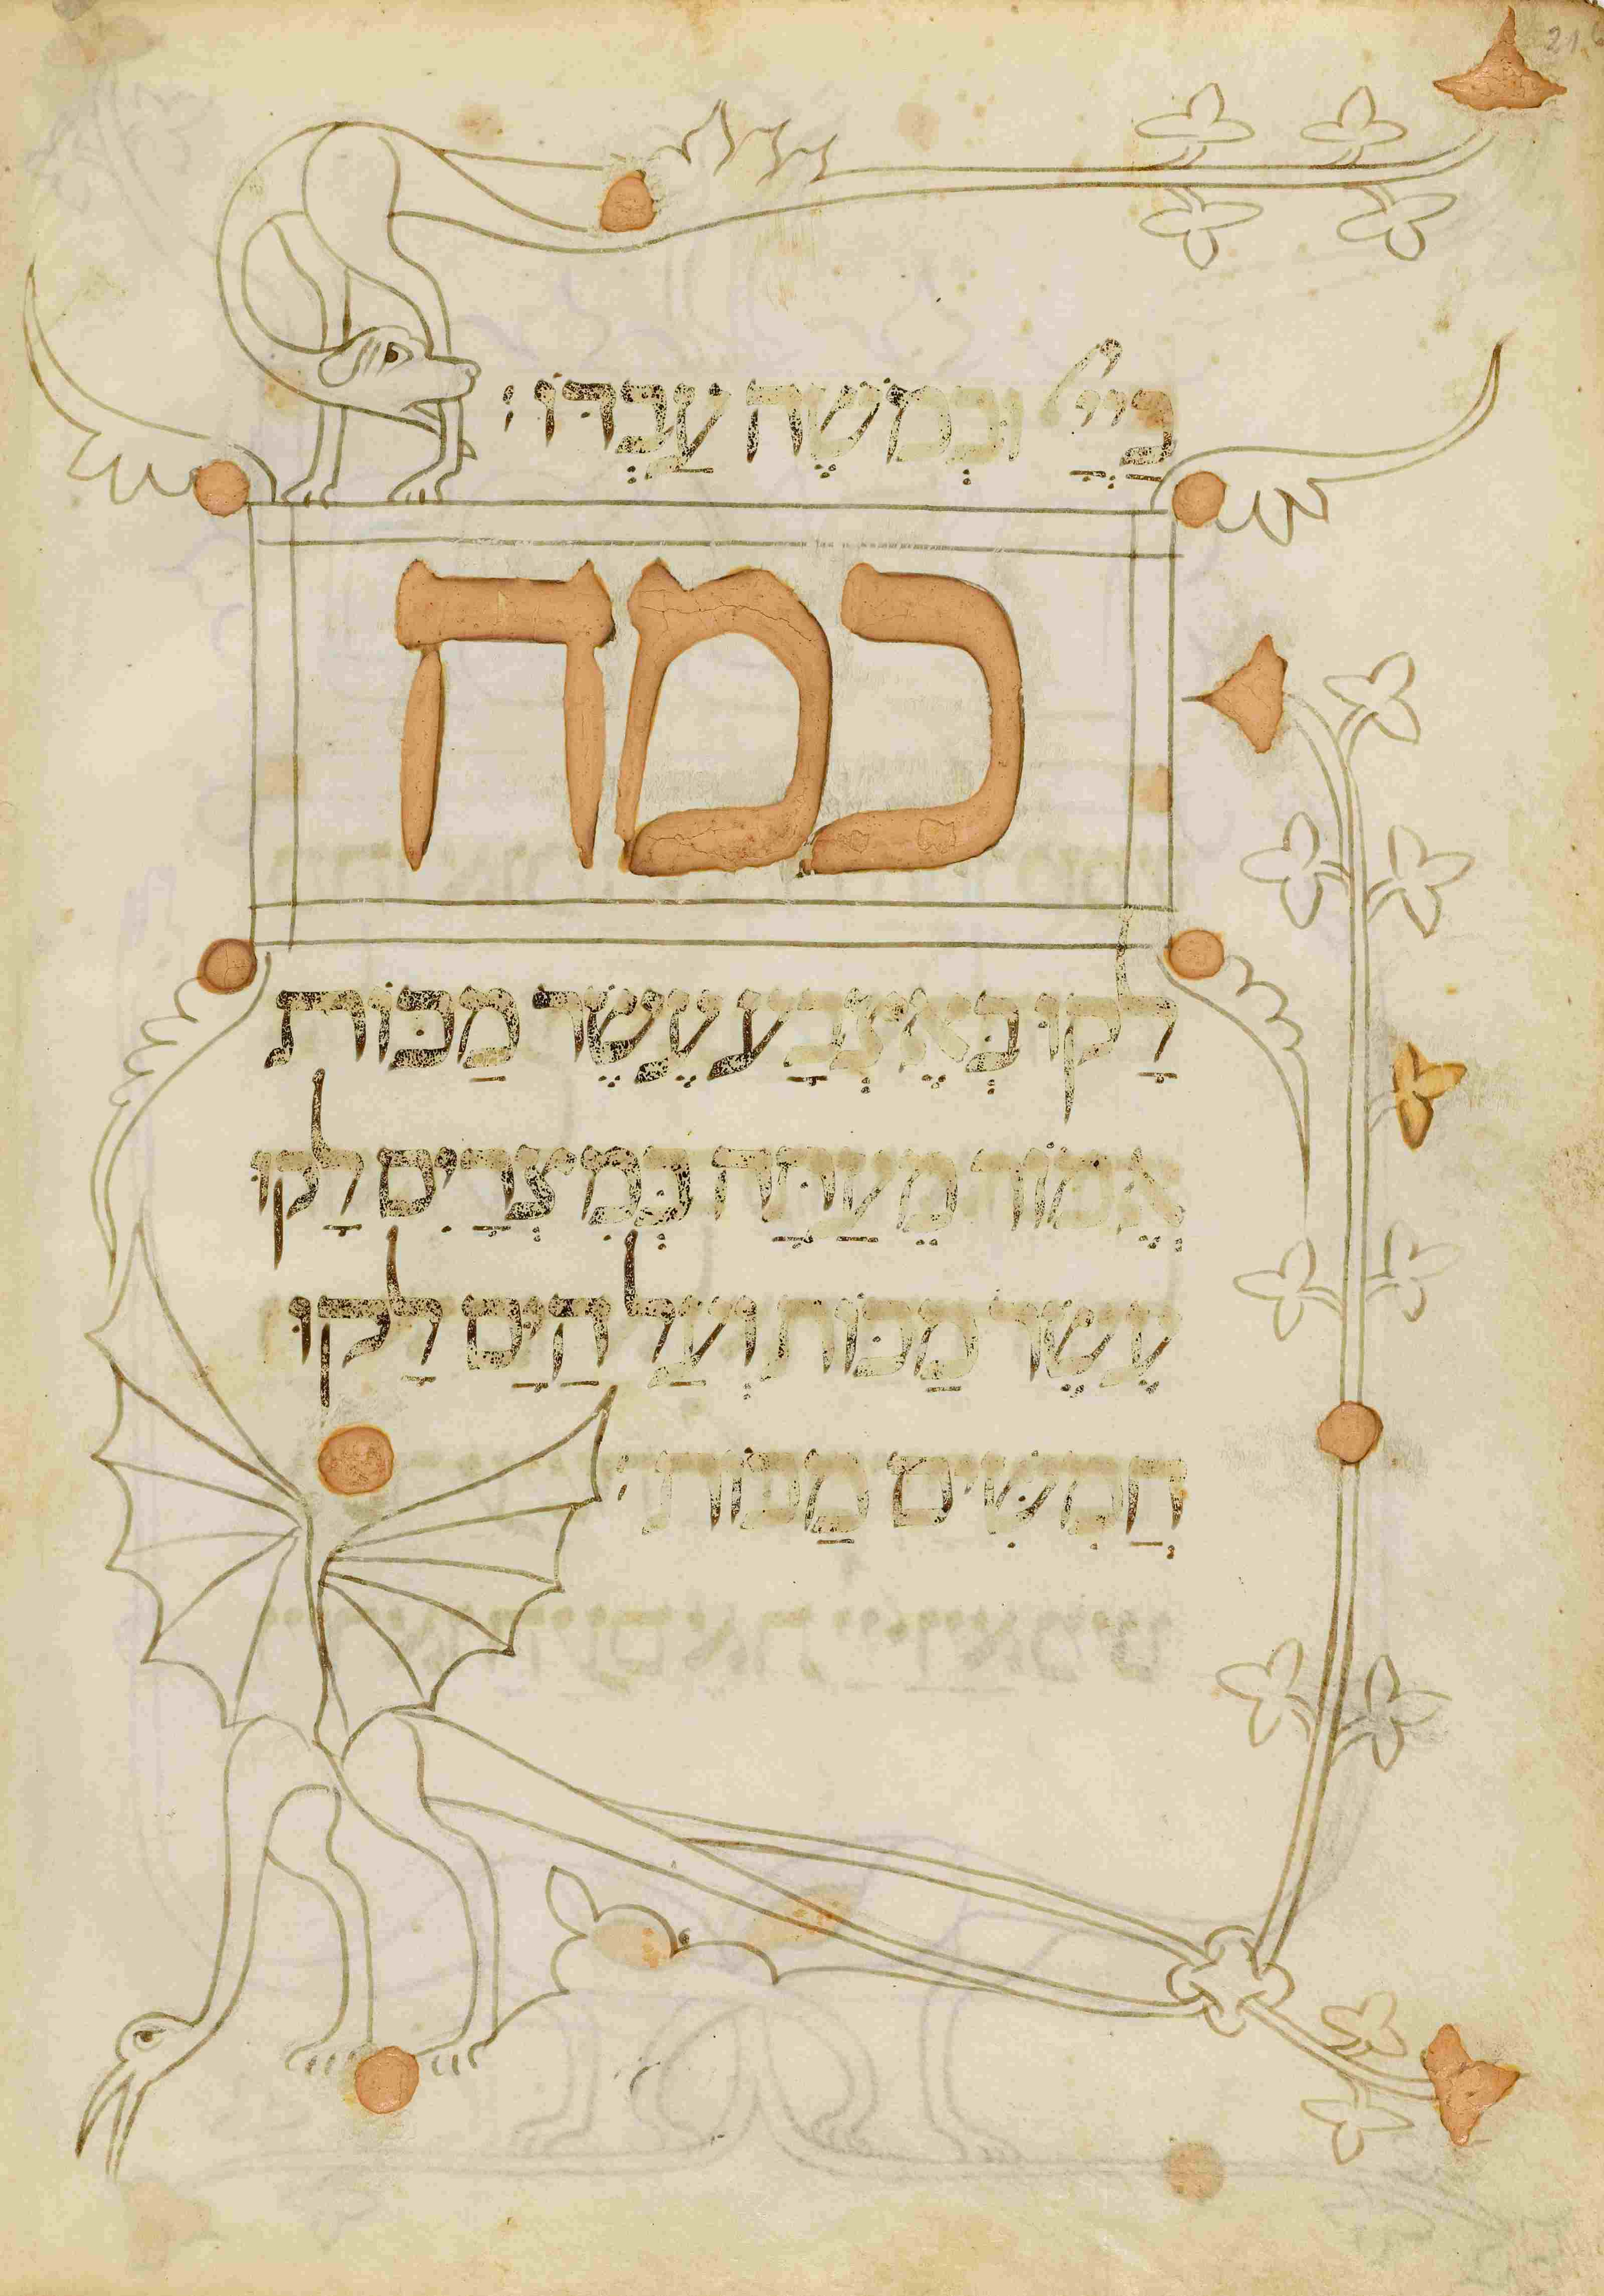 21
בַּיְיָ וּבְמֹשֶׁה עַבְדּוֹ׃
כמה
לָקוּ בְּאֶצְבַּע עֶשֶׂר מַכּוֹת
אֱמוֹר מֵעַתָּה בְּמִצְרַיִם לָקוּ
עֶשֶׂר מַכּוֹת וְעַל הַיָּם לָקוּ
חֲמִשִּׁים מַכּוֹת׃